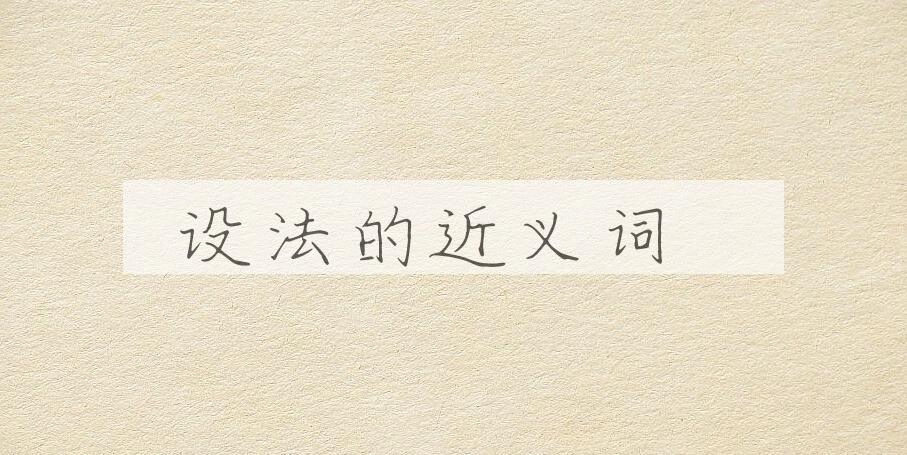 设法的近义词